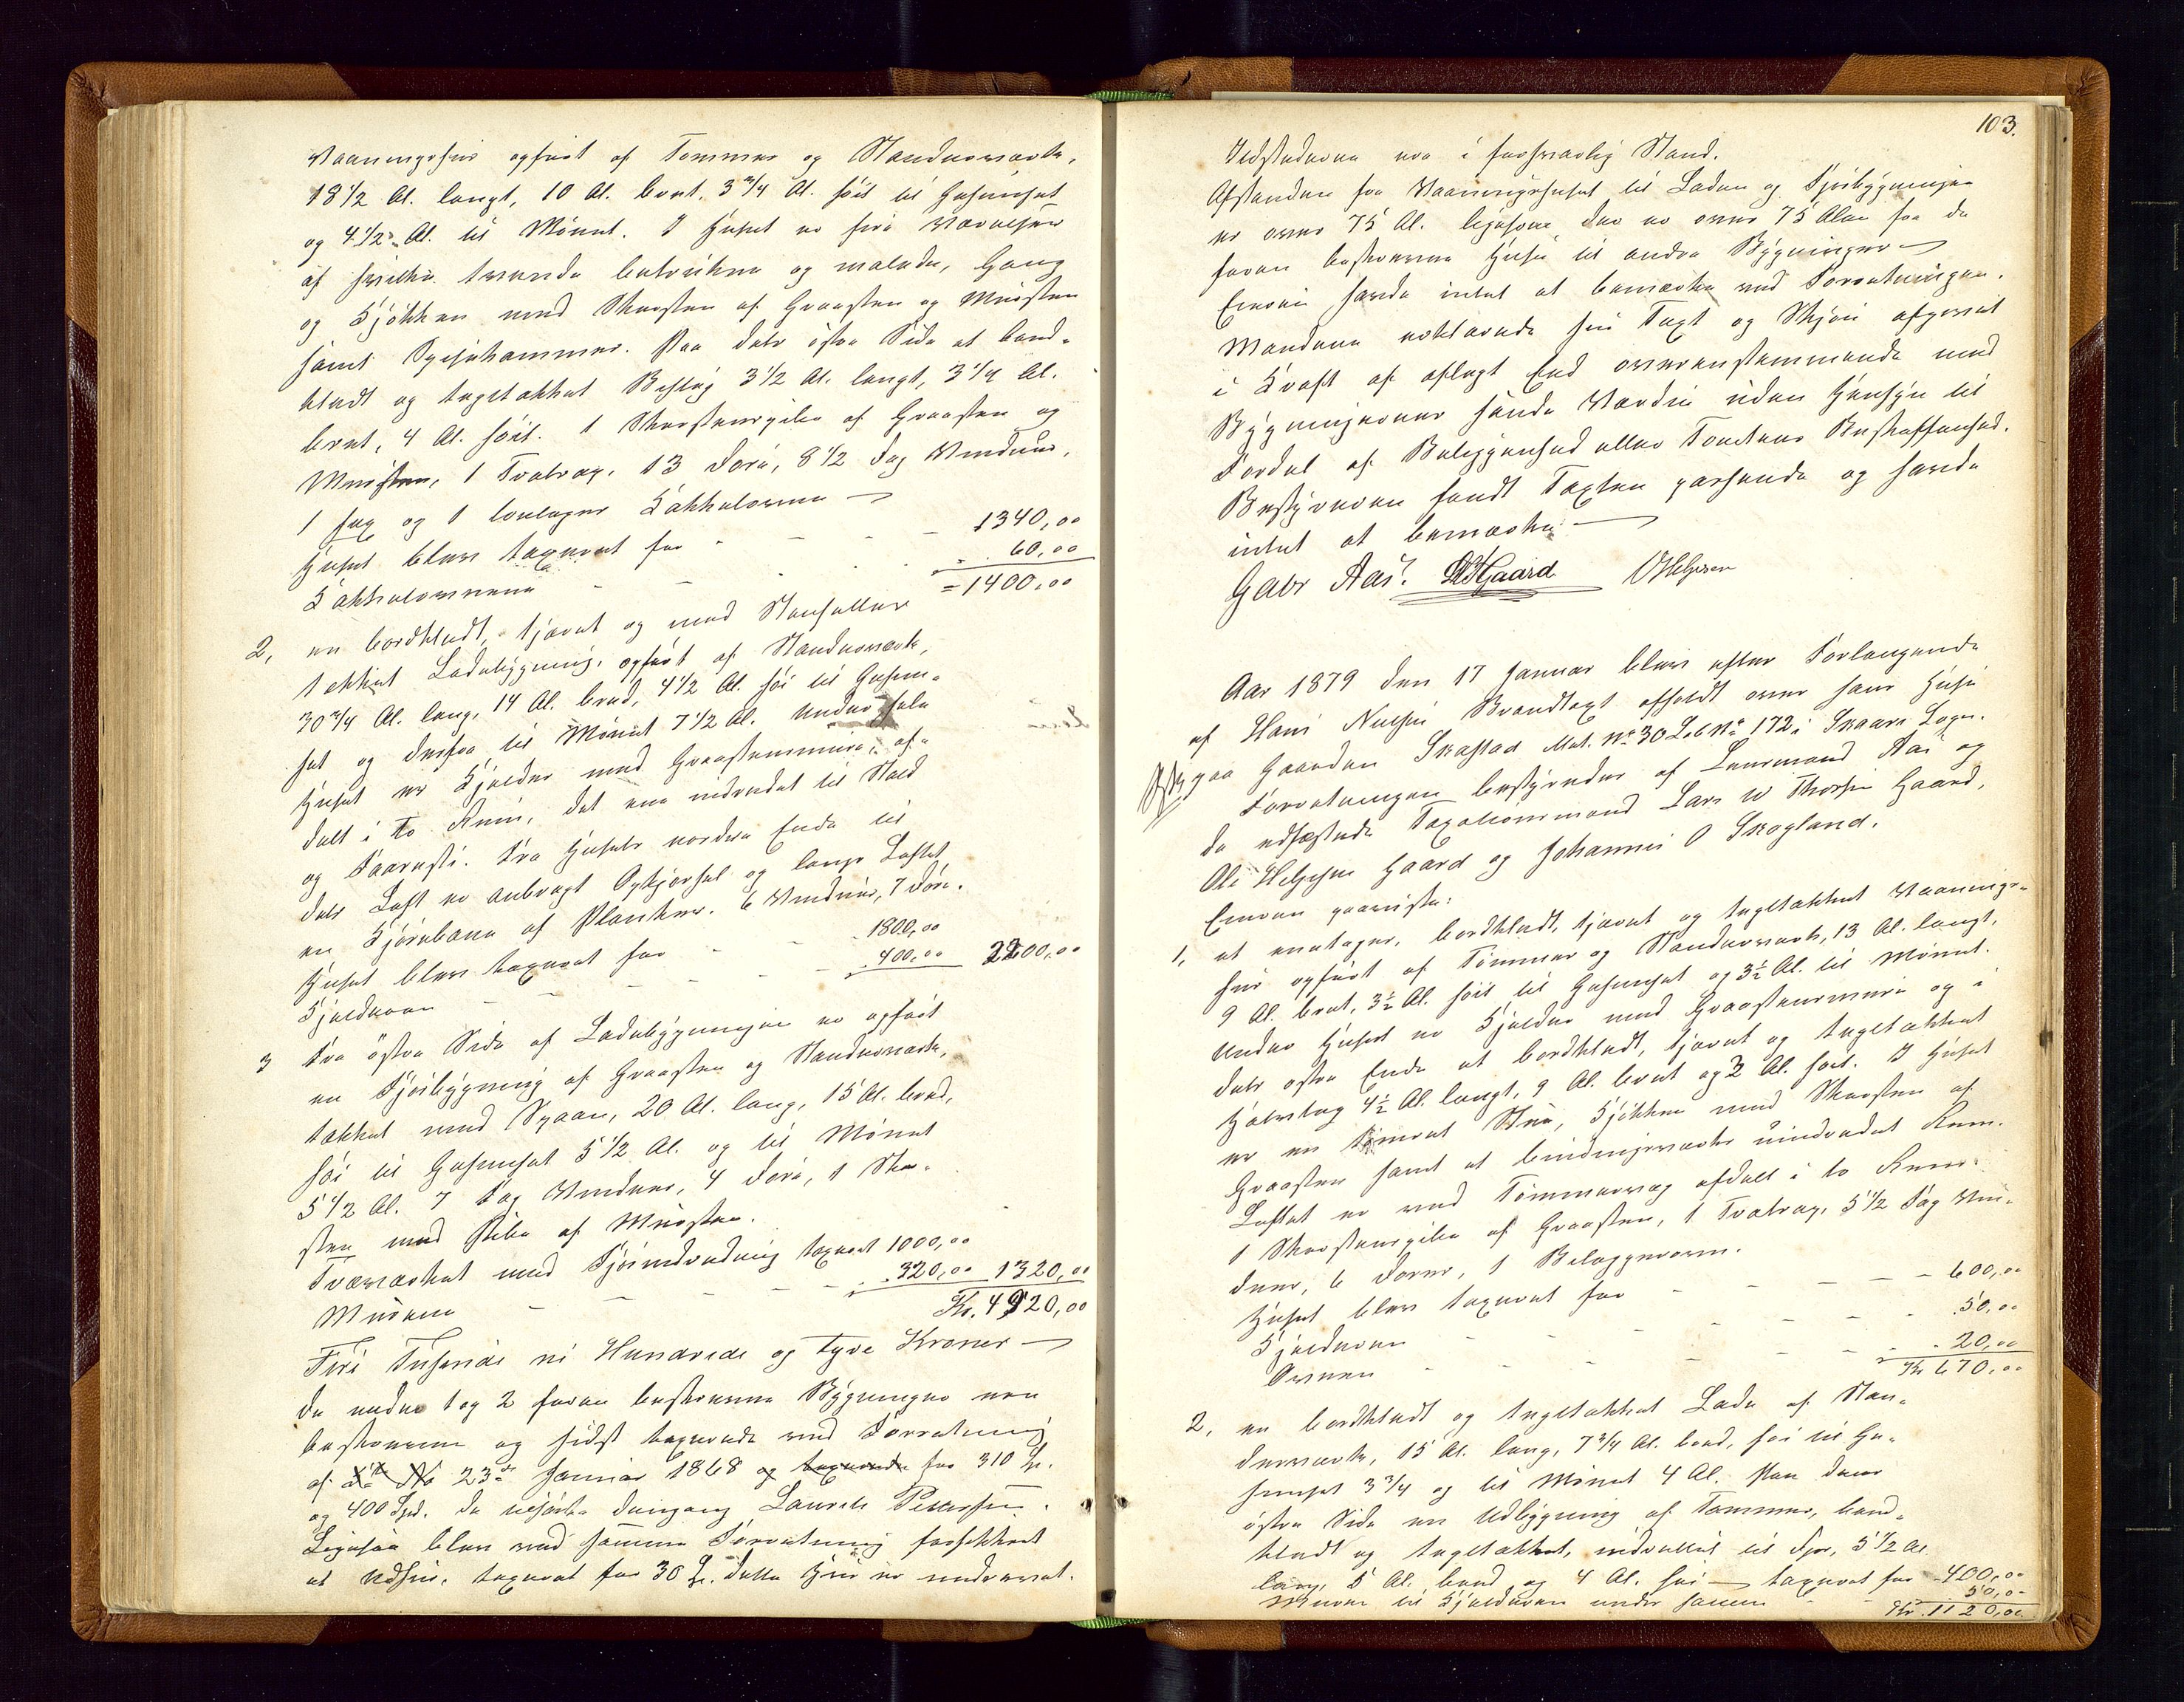 Vaaningshus opført af Tømmer og Standerværk,
18 1/2 Al. langt, 10 Al. bredt, 3 3/4 Al. høit til Gesimset
og 4 1/2 Al. til Mønnet. I Huset er fire Værelser
af hvilke trende betrukne og malede, Gang
og Kjøkken med Skorsten af Graasten og Mursten
samt Spisekammer. Paa dets østre Side et bord-
klædt og tagtækket Bislag 3 1/2 Al. langt, 3 1/4 Al.
bredt, 4 Al. høit. 1 Skorstenspibe af Graasten og
Mursten, 1 Svaltrap. 13 Døre, 8 1/2 Fag Vinduer,
1 fag og 1 toetages Kakkelovne
Huset blev taxeret for - - - 1340,00
Kakkelovnene - - - 60,00
= 1400,00
2, en bordklædt, tjæret og med Stenheller
tækket Ladebygning, opført af Standerværk,
30 3/4 Al. lang, 14 Al. bred, 4 1/2 Al. høi til Gesim-
set og derfra til Mønnet 7 1/2 Al. Under hele
Huset er Kjelder med Graastensmure, af-
delt i to Rum, det ene indredet til Stald
og Faaresti. Fra Husets nordre Ende til
dets Loft er anbragt Opkjørsel og langs Loftet
en Kjørebane af Planker. 6 Vinduer, 7 Døre.
Huset blev taxeret for - - 1800,00
Kjelderen - - - 400,00 2200,00
3 Fra østre Side af Ladebygningen er opført
en Fjøsbygning af Graasten og Standerværk,
tækket med Spaan, 20 Al. lang, 15 Al. bred,
høi til Gesimset 5 1/2 Al. og til Mønnet
5 1/2 Al. 7 Fag Vinduer, 4 Døre, 1 Skor-
sten med Pibe af Mursten.
Træværket med Fjøsindredning taxeret 1000,00
Murene - - - 320,00 1320,00
Kr. 4920,00
Fire Tusende ni Hundrede og tyve Kroner
De under 1 og 2 foran beskrevne Bygninger ere
beskrevne og sidst taxerede ved Forretning
af 23de Januar 1868 og taxerede for 310 Sp.
og 400 Spd. da tilhørte dengang Laurets Pedersen.
Ligesaa blev ved samme Forretning forsikkret
et Udhus, taxeret for 30 Sp. dette Hus er nedrevet.
103.
Ildstederne ere i forsvarlig Stand.
Afstanden fra Vaaningshuset til Laden og Fjøsbygningen
er over 75 Al. ligesom der er over 75 Alen fra de
foran beskrevne Huse til andre Bygninger
Eieren havde intet at bemærke ved Forretningen.
Mændene erklærede sin Taxt og Skjøn afgivet
i Kraft af aflagt Eed overensstemmende med
Bygningernes sande Værdie uden Hensyn til
Fordel af Beliggenhed eller Tomtens Beskaffenhed.
Bestyreren fandt Taxten passende og havde
intet at bemærke.
Gabr Aas. LWGaard OHelgesen
Aar 1879 den 17 Januar blev efter Forlangende
af Hans Nielsen Brandtaxt afholdt over hans Huse
paa Gaarden Skastad Mat. No 30 Løb No 172 i Skaare Sogn.
Forretningen bestyredes af Lensmand Aas og
de edfæstede Taxationsmænd Lars W Thorsen Gaard,
Ole Helgesen Gaard og Johannes O Skogland.
Eieren paaviste:
1, et enetages, bordklædt, tjæret og tagtækket Vaanings-
hus opført af Tømmer og Standerværk, 13 Al. langt,
9 Al. bredt, 3 1/2 Al. høit til Gesimset og 3 1/2 Al. til Mønnet.
Under Huset er Kjelder med Graastensmure og i
dets østre Ende et bordklædt, tjæret og tagtækket
Halvtag 4 1/2 Al. langt, 9 Al. bredt og 2 Al. høit. I Huset
er en tømret Stue, Kjøkken med Skorsten af
Graasten samt et bindingsværks uindredet Rum.
Loftet er med Tømmervæg afdelt i to Rum.
1 Skorstenspibe af Graasten, 1 Svaltrap, 5 1/2 Fag Vin-
duer, 6 Dører, 1 Bilæggerovn.
Huset blev taxeret for - - - 600,00
Kjelderen - - - 50,00
Ovnen - - - 20,00
Kr 670,00
2, en bordklædt og tagtækket Lade af Stan-
derværk, 15 Al. lang, 7 3/4 Al. bred, høi til Ge-
simset 3 3/4 og til Mønnet 4 Al. Paa dens
østre Side en Udbygning af Tømmer, bord-
klædt og tagtækket, indrettet til Fjøs, 5 1/2 Al
lang, 5 Al. bred og 4 Al. høi taxeret for 400,00
Muren til Kjelderen under samme - 50,00
Kr. 1120,00